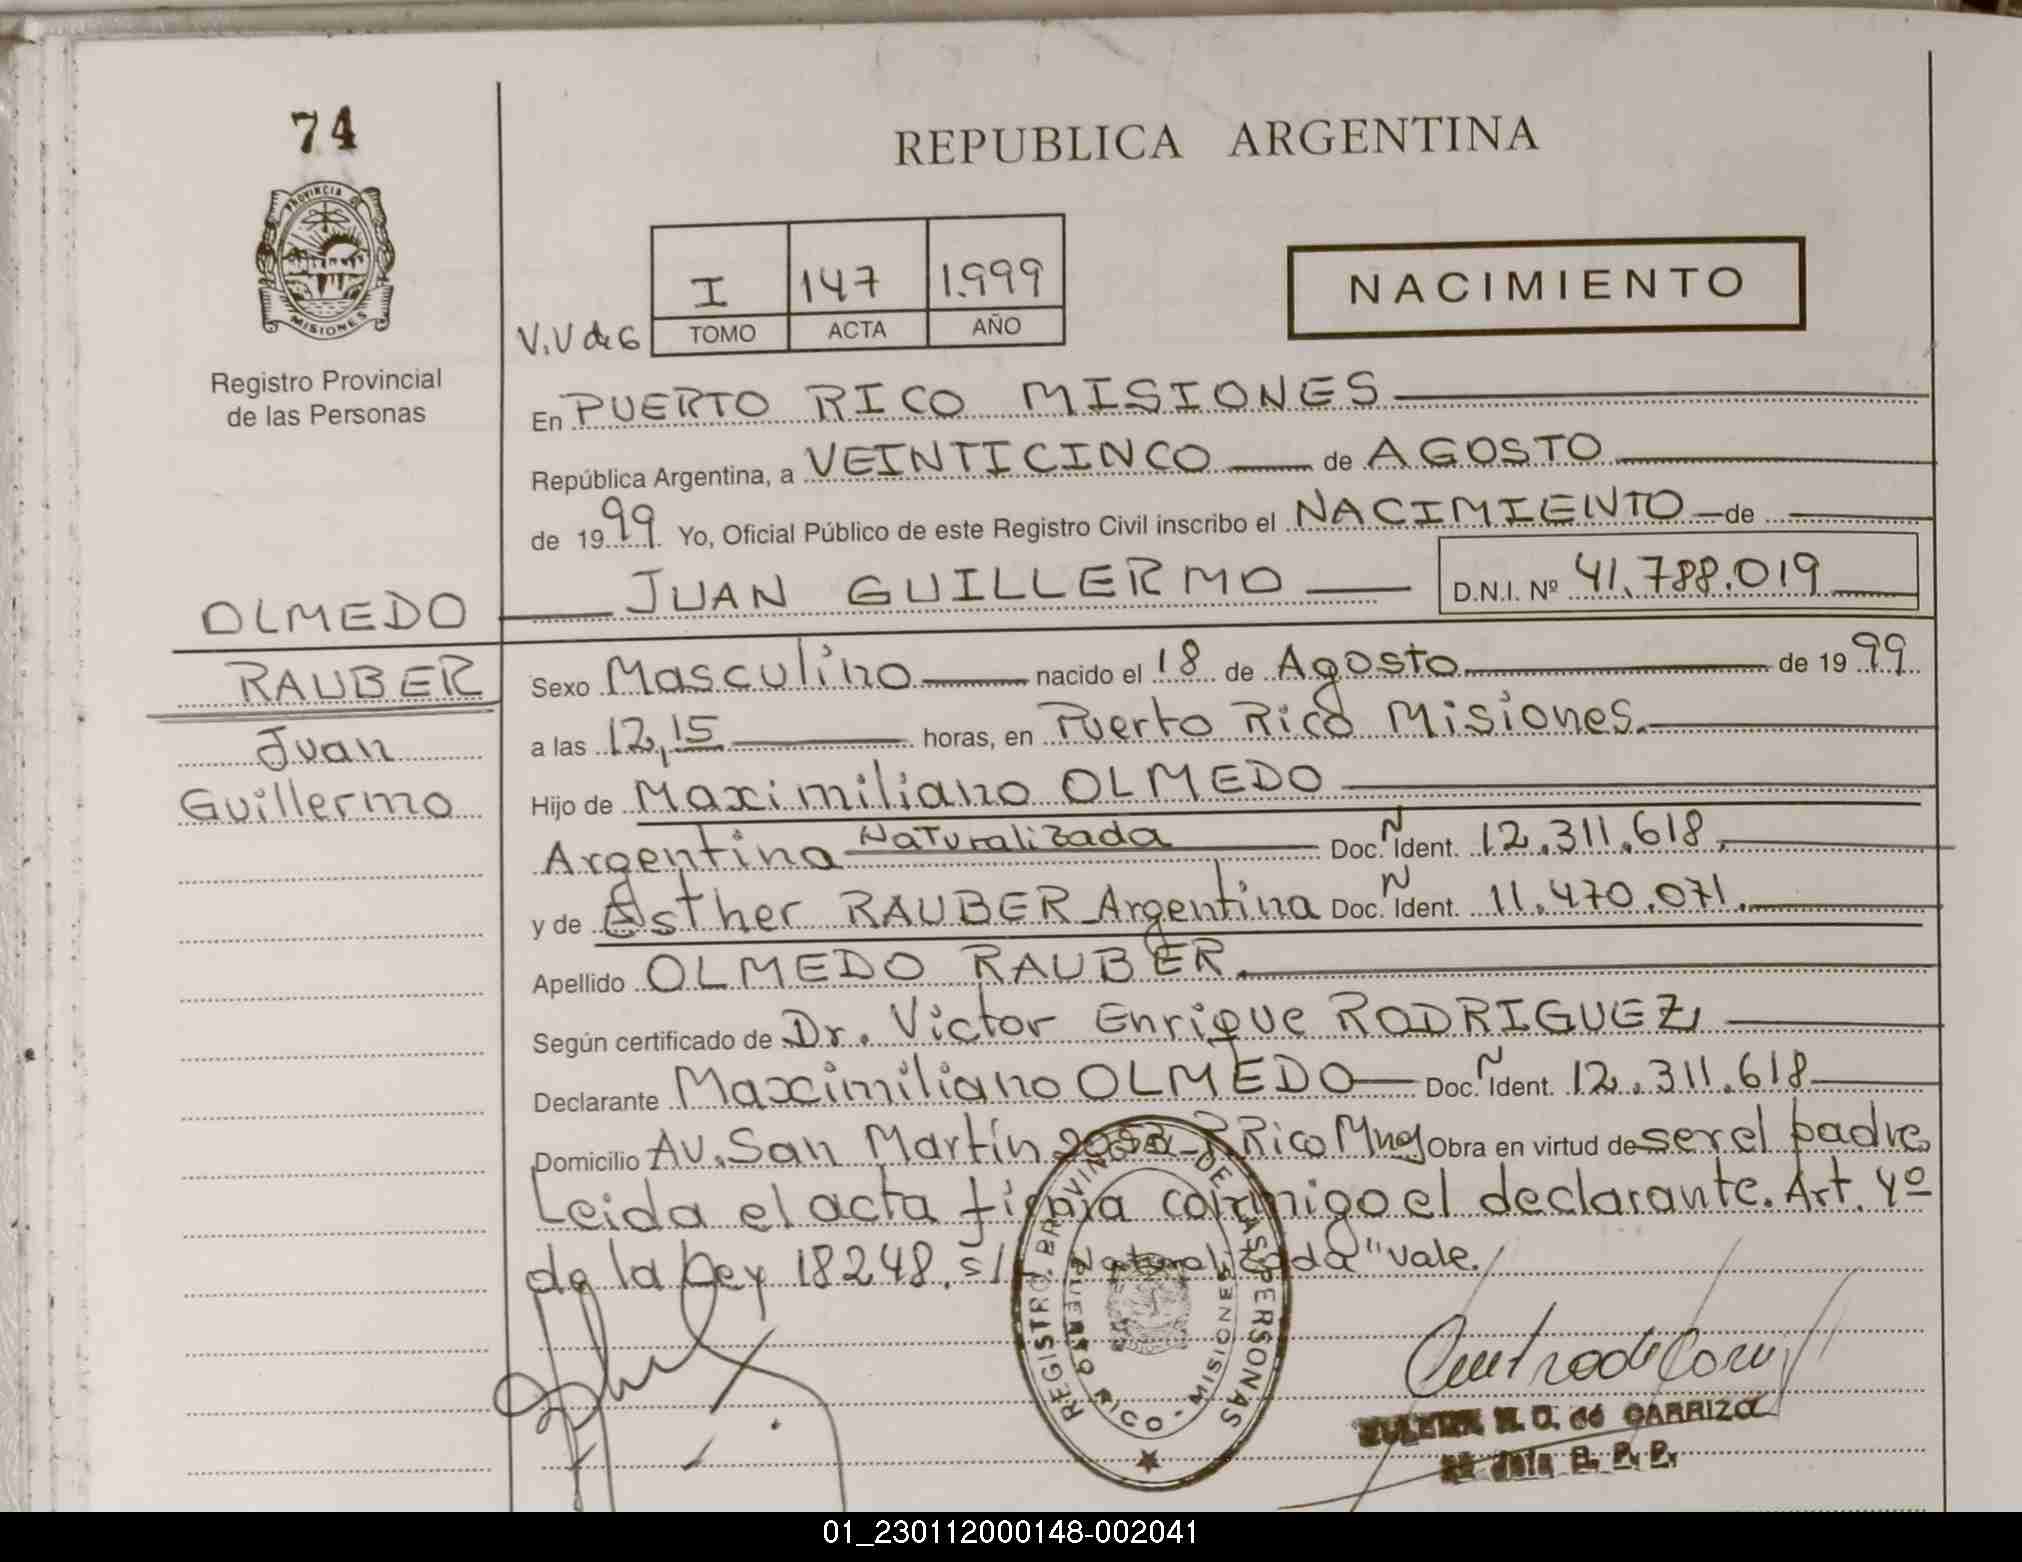 74
PROVINCIA DE
MISIONES
Registro Provincial
de las Personas
REPUBLICA ARGENTINA
I 147 1.999
V.V de G TOMO ACTA AÑO
NACIMIENTO
En PUERTO RICO MISIONES
República Argentina, a VEINTICINCO de AGOSTO
de 1999 Yo, Oficial Público de este Registro Civil inscribo el NACIMIENTO de
JUAN GUILLERMO D.N.I. Nº 41.788.019
OLMEDO
RAUBER
Juan
Guillermo
Sexo Masculino nacido el 18 de Agosto de 1999
a las 12,15 horas, en Puerto Rico Misiones.
Hijo de Maximiliano OLMEDO
Argentina Naturalizada Doc. Ñ Ident. 12.311.618.
y de Esther RAUBER Argentina Doc. Ñ Ident. 11.470.071.
Apellido OLMEDO RAUBER.
Según certificado de Dr. Victor Enrique RODRIGUEZ
Declarante Maximiliano OLMEDO Doc. Ñ Ident. 12.311.618
Domicilio AV. San Martín P.Rico Obra en virtud de ser el padre
Leida el acta firma conmigo el declarante. Art. 4º
de la Ley 18248. s/l "Naturalizada" vale.
REGISTRO PROVINCIAL DE LAS PERSONAS
PUERTO RICO - MISIONES
de CARRIZO
R. P. P.
01_230112000148-002041